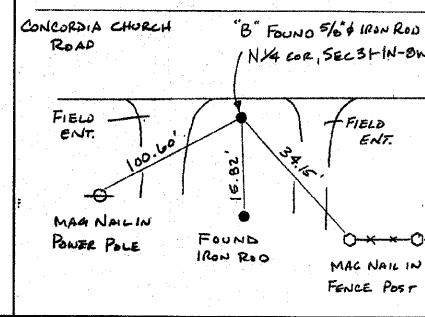 CONCORDIA CHURCH
ROAD
"B" FOUND 5/8"ɸ IRON ROD
N 1/4 COR, SEC 31-1N-8W
FIELD
ENT.
FIELD
ENT.
100.60'
15.82'
34.15'
MAG NAIL IN
POWER POLE
FOUND
IRON ROD
MAG NAIL IN
FENCE POST